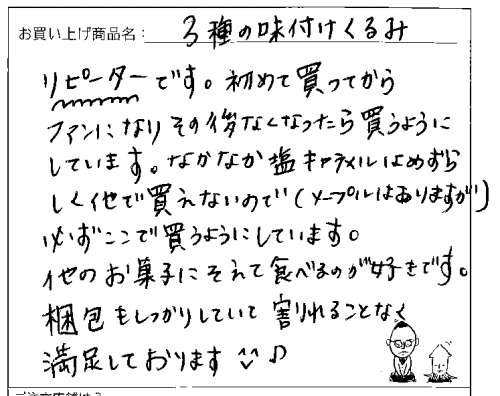 お買い上げ商品名: 3種の味付けくるみ
リピーターです。初めて買ってから
ファンになりその後なくなったら買うように
しています。なかなか塩キャラメルはめずら
しく他で買えないので(メープルはありますが)
必ずここで買うようにしています。
他のお菓子にそえて食べるのが好きです。
梱包もしっかりしていて割れることなく
満足しております♪